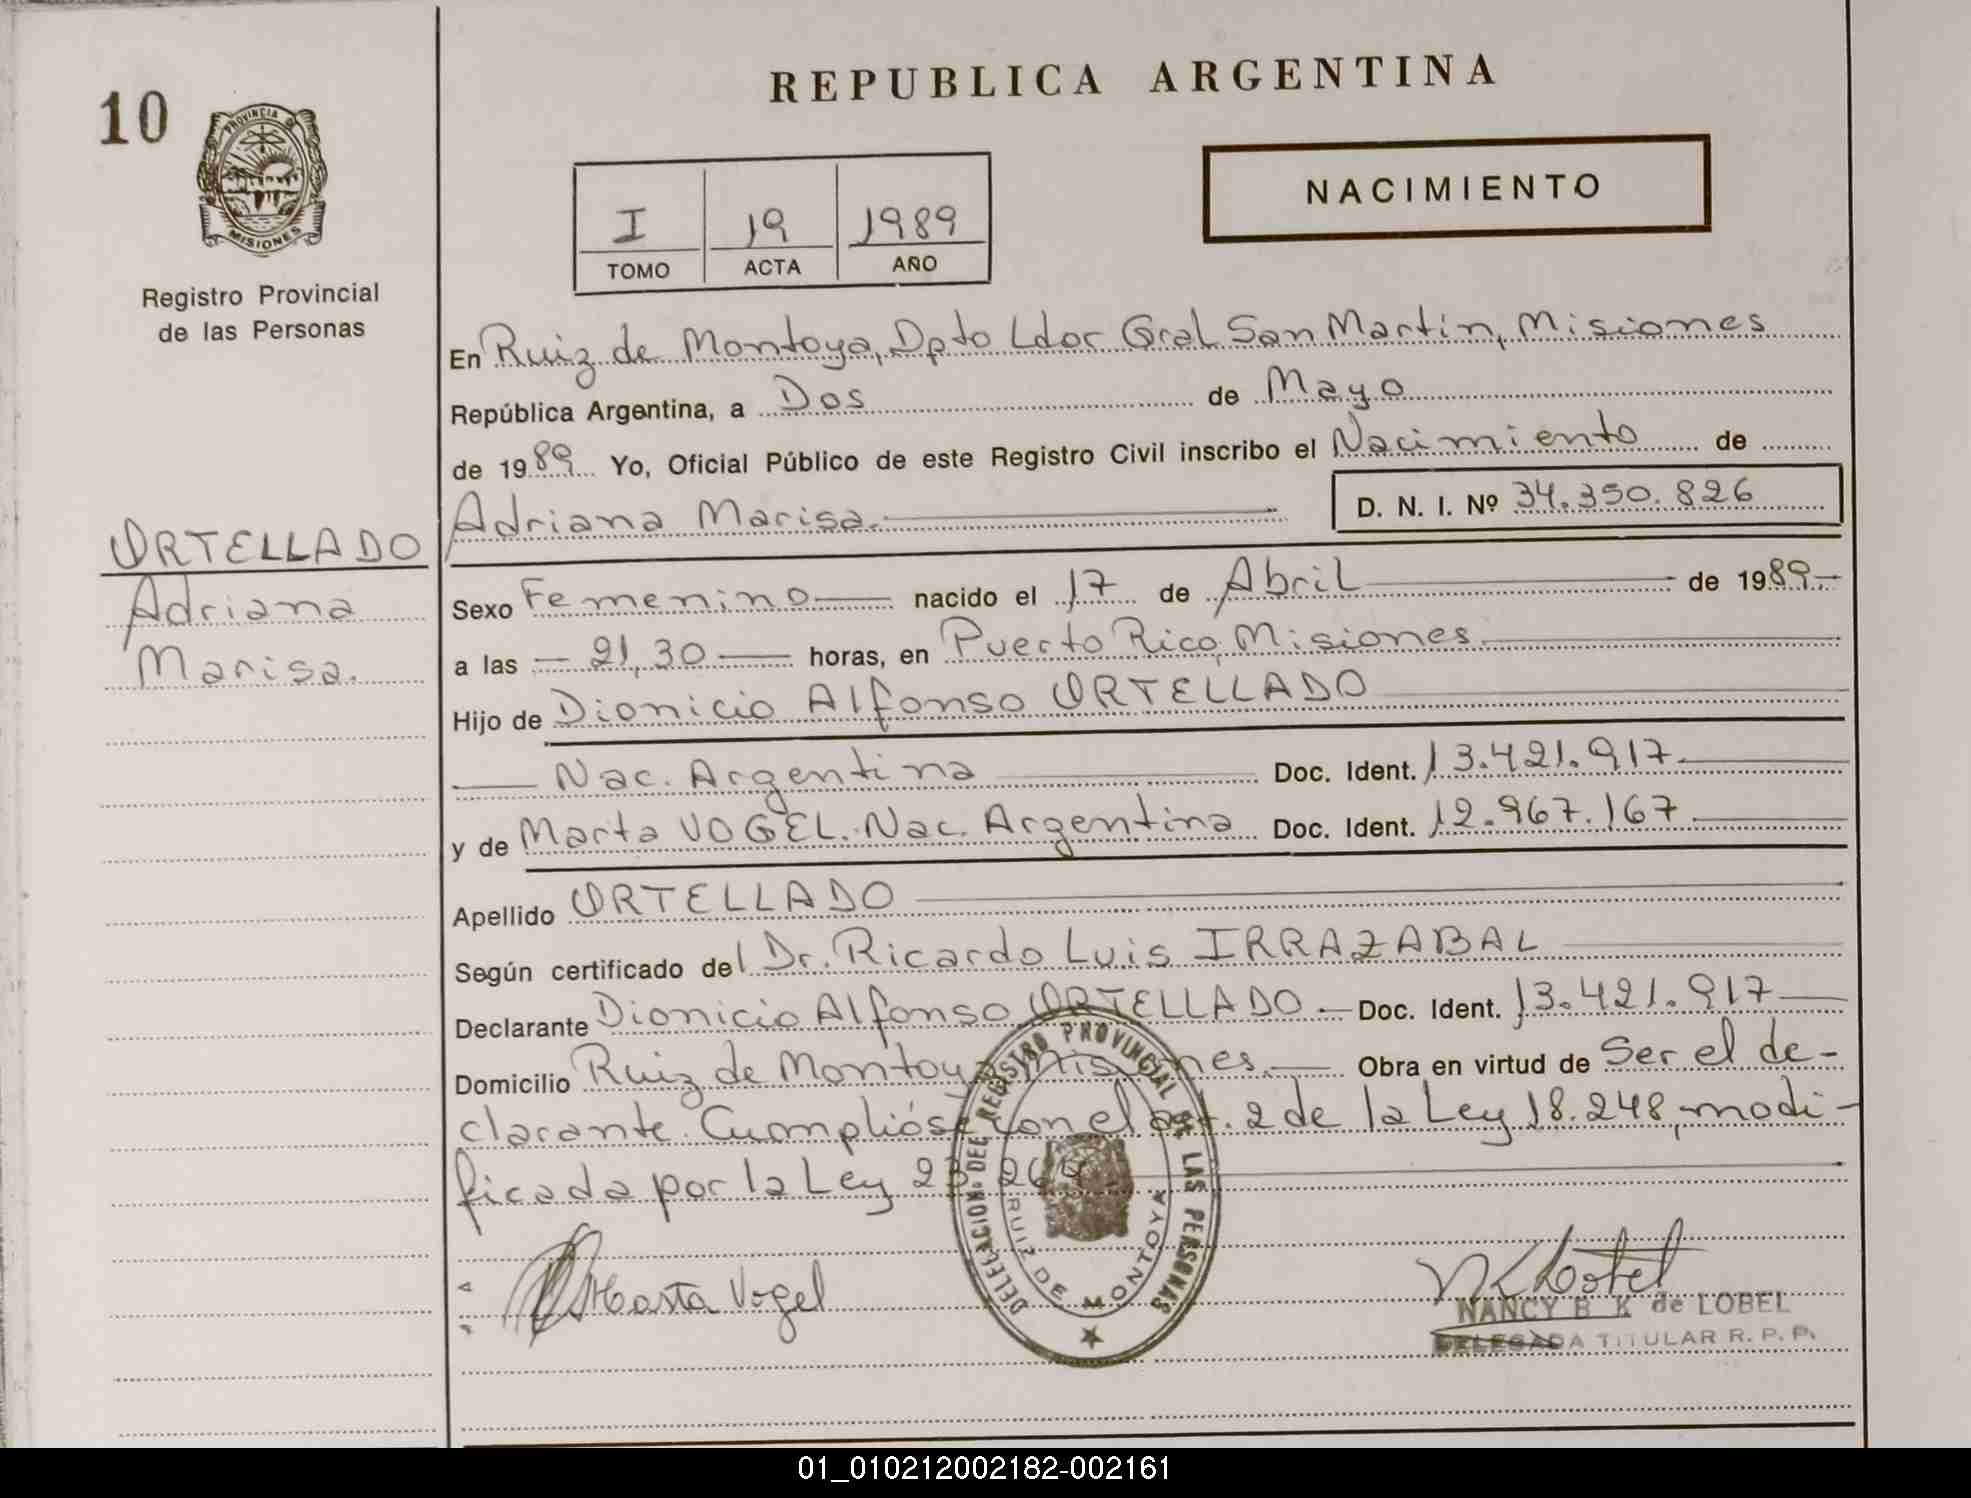 10
PROVINCIA DE
MISIONES
Registro Provincial
de las Personas
ORTELLADO
Adriana
Marisa.
REPUBLICA ARGENTINA
NACIMIENTO
I 19 1989
TOMO ACTA AÑO
En Ruiz de Montoya, Dpto Ldor Gral San Martín, Misiones
República Argentina, a Dos de Mayo
de 1989 Yo, Oficial Público de este Registro Civil inscribo el Nacimiento de
Adriana Marisa. D. N. I. Nº 34.350.826
Sexo Femenino nacido el 17 de Abril de 1989
a las 21,30 horas, en Puerto Rico, Misiones
Hijo de Dionicio Alfonso ORTELLADO
Nac. Argentina Doc. Ident. 13.421.917
y de Marta VOGEL. Nac. Argentina Doc. Ident. 12.967.167
Apellido ORTELLADO
Según certificado del Dr. Ricardo Luis IRRAZABAL
Declarante Dionicio Alfonso ORTELLADO Doc. Ident. 13.421.917
Domicilio Ruiz de Montoya Misiones. Obra en virtud de Ser el de-
clarante. Cumplióse con el art. 2 de la Ley 18.248, modi-
ficada por la Ley 23.264.
DELEGACION DEL REGISTRO PROVINCIAL DE LAS PERSONAS
RUIZ DE MONTOYA
Marta Vogel
NANCY B. K. de LOBEL
DELEGADA TITULAR R. P. P.
01_010212002182-002161